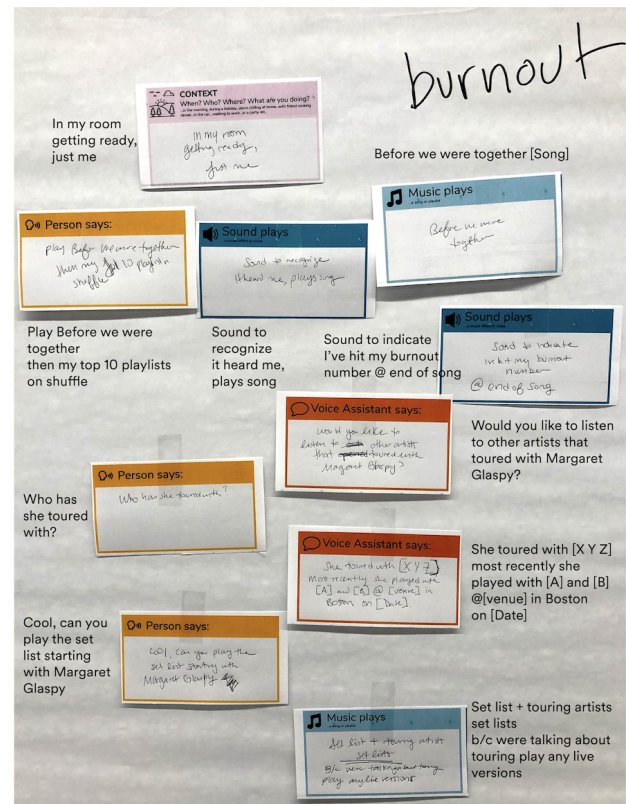 burnout
CONTEXT
When? Who? Where? What are you doing?
In my room
getting ready,
just me
In my room
getting ready,
just me
Before we were together [Song]
Person says:
play Before we were together
then my top 10 playlists on
shuffle
Sound plays
Sound to recognize
it heard me, plays song
Music plays
Before we were
together
Play Before we were
together
then my top 10 playlists
on shuffle
Sound to
recognize
it heard me,
plays song
Sound to indicate
I've hit my burnout
number @ end of song
Sound plays
Sound to indicate
ive hit my burnout
number
@ end of song
Voice Assistant says:
Would you like to
listen to other artists
that toured with
Margaret Glaspy?
Would you like to listen
to other artists that
toured with Margaret
Glaspy?
Person says:
Who has she toured with?
Who has
she toured
with?
Voice Assistant says:
She toured with [X Y Z]
most recently she played with
[A] and [B] @ [venue] in
Boston on [Date]
She toured with [X Y Z]
most recently she
played with [A] and [B]
@[venue] in Boston
on [Date]
Cool, can you
play the set
list starting
with Margaret
Glaspy
Person says:
Cool, can you play the
set list starting with
Margaret Glaspy
Music plays
Set list + touring artists
set lists
B/c were talking about touring
play any live versions
Set list + touring artists
set lists
b/c were talking about
touring play any live
versions